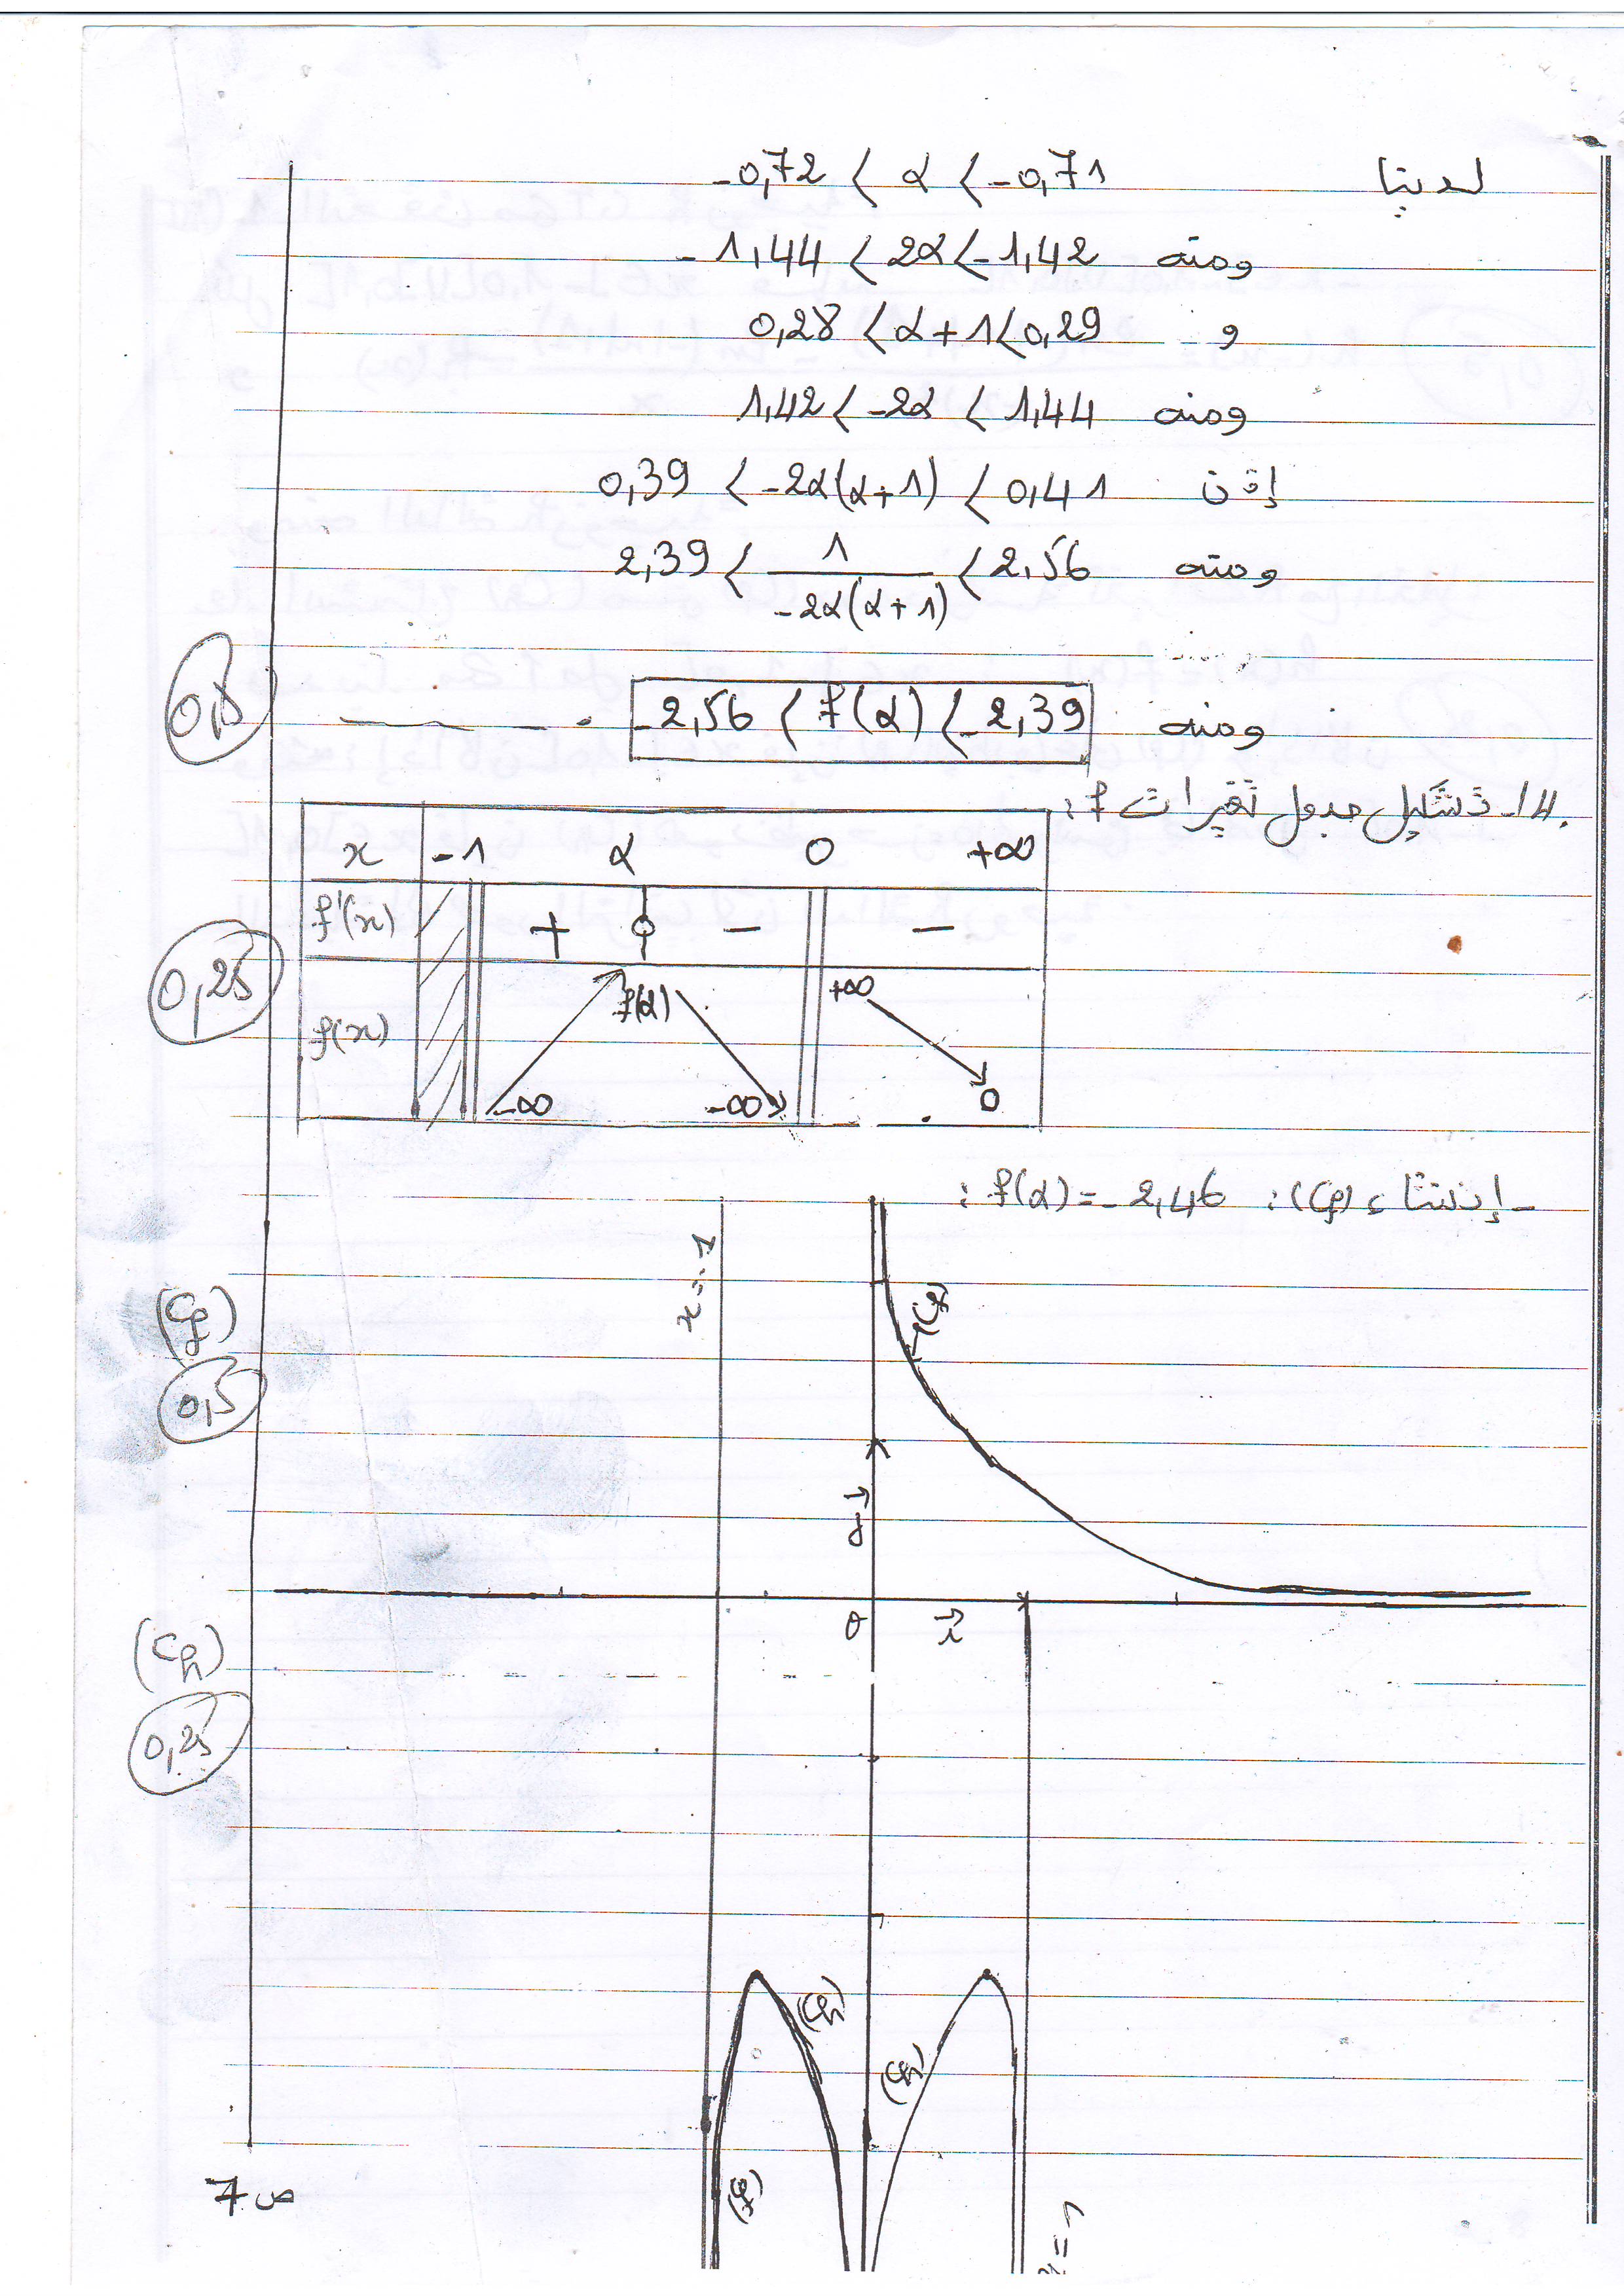 لدينا -0,72 < α < -0,71
ومنه -1,44 < 2α < -1,42
و 0,28 < α+1 < 0,29
ومنه 1,42 < -2α < 1,44
إذن 0,39 < -2α(α+1) < 0,41
ومنه 2,39 < 1/(-2α(α+1)) < 2,56
ومنه -2,56 < f(α) < -2,39
0,5
4/- تشكيل جدول تغيرات f:
x -1 α 0 +∞
f'(x) + 0 - -
0,25
f(x) -∞ f(α) -∞ +∞ 0
- إنشاء (Cf): f(α) = -2,46:
x=-1
(Cf)
(Cf)
0,5
j
0 i
(Ch)
0,25
(Ch)
(Ch)
(Cf)
x=1
ص7